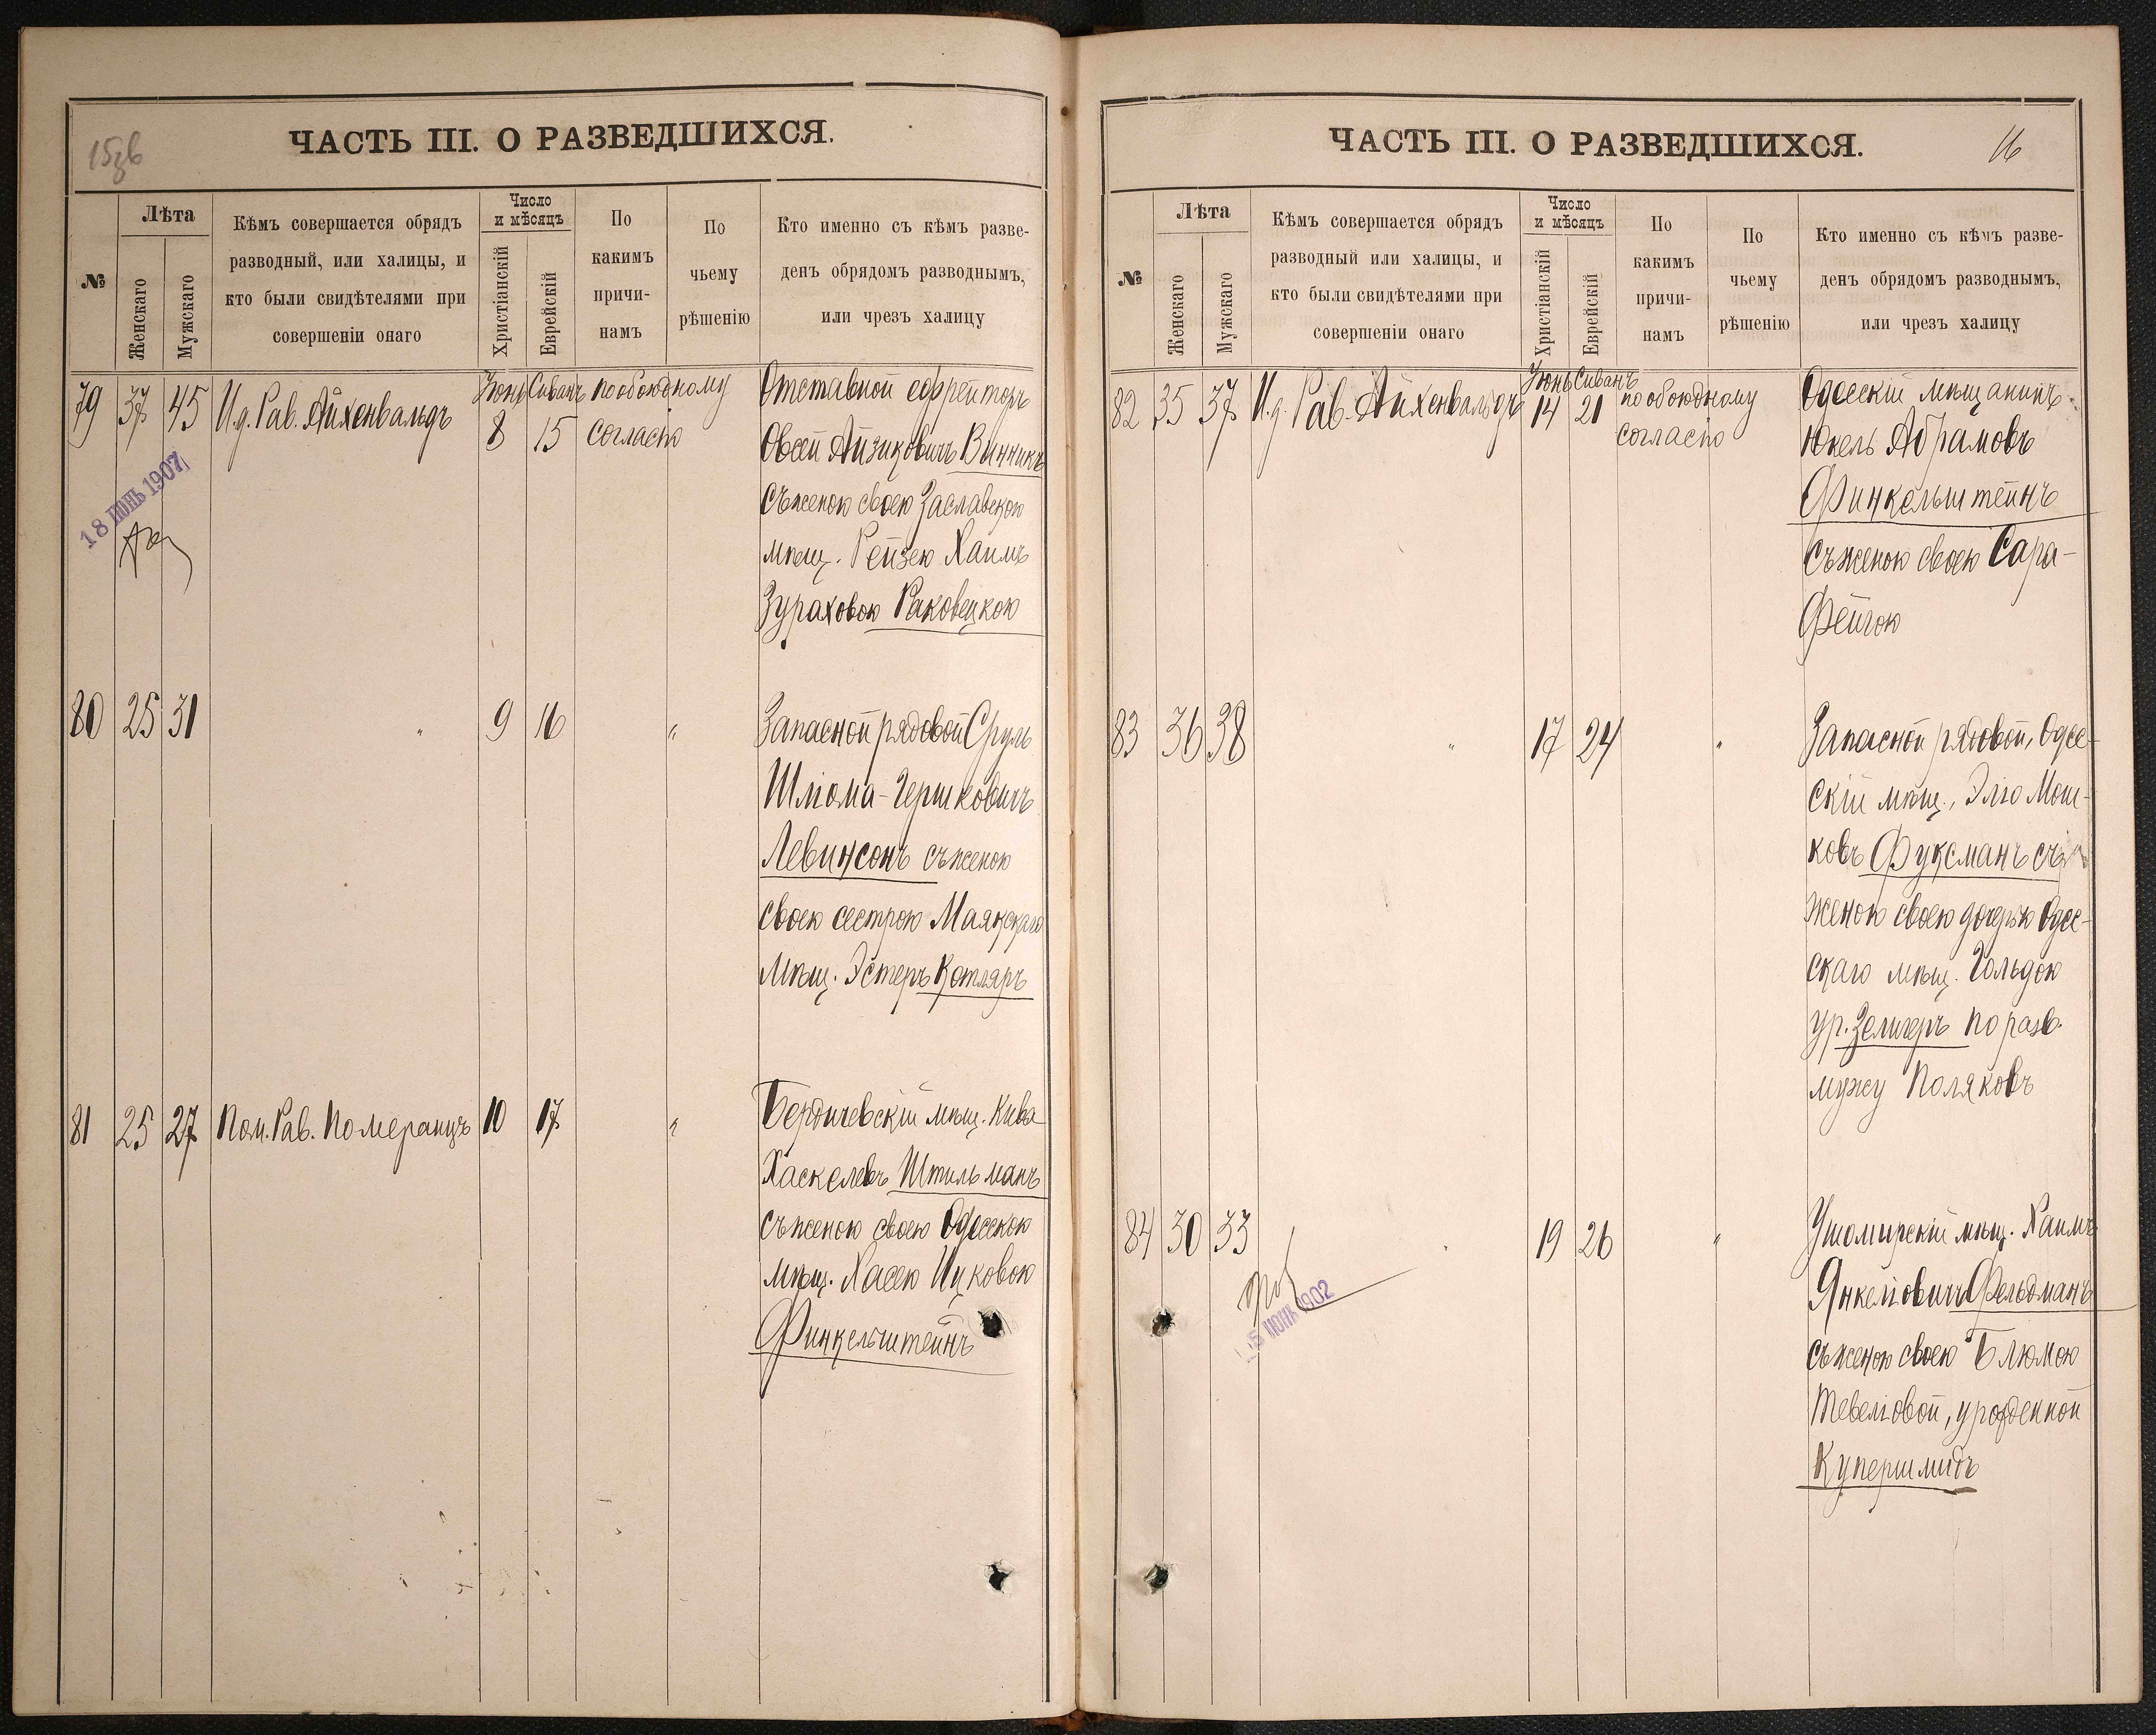 15зв
ЧАСТЬ III. О РАЗВЕДШИХСЯ.
№
Лѣта
Женскаго
Мужскаго
Кѣмъ совершается обрядъ
разводный, или халицы, и
кто были свидѣтелями при
совершеніи онаго
Число
и мѣсяцъ
Христіанскій
Еврейскій
По
какимъ
причи-
намъ
По
чьему
рѣшенію
Кто именно съ кѣмъ разве-
денъ обрядомъ разводнымъ,
или чрезъ халицу
79 37 45 И.д. Рав. Айхенвальдъ
Іюнь Сиванъ
8 15
по обоюдному
согласію
Отставной ефрейторъ
Овсей Айзиковичъ Винникъ
съ женою своею Заславскою
мѣщ. Рейзею Хаимъ
Зураховою Раковецкою
18 ІЮНЬ 1907
80 25 31 " 9 16 "
Запасной рядовой Сруль
Шлома-Гершковичъ
Левинсонъ съ женою
своею сестрою Маякскаго
мѣщ. Эстеръ Котляръ
81 25 27 Пом. Рав. Померанцъ 10 17 "
Бердичевскій мѣщ. Кива
Хаскелевъ Штильманъ
съ женою своею Одесскою
мѣщ. Хасею Ицковою
Финкельштейнъ
ЧАСТЬ III. О РАЗВЕДШИХСЯ.
16
№
Лѣта
Женскаго
Мужскаго
Кѣмъ совершается обрядъ
разводный или халицы, и
кто были свидѣтелями при
совершеніи онаго
Число
и мѣсяцъ
Христіанскій
Еврейскій
По
какимъ
причи-
намъ
По
чьему
рѣшенію
Кто именно съ кѣмъ разве-
денъ обрядомъ разводнымъ,
или чрезъ халицу
82 35 37 И.д. Рав. Айхенвальдъ
Іюнь Сиванъ
14 21
по обоюдному
согласію
Одесскій мѣщанинъ
Юкель Абрамовъ
Финкельштейнъ
съ женою своею Сара-
Фейгою
83 36 38 " 17 24 "
Запасной рядовой, Одес-
скій мѣщ., Эліо Мош-
ковъ Фуксманъ съ
женою своею дочерью Одес-
скаго мѣщ. Гольдою
ур. Зелигеръ по разв.
мужу Поляковъ
84 30 33 " 19 26 "
Ушомирскій мѣщ. Хаимъ
Янкеліовичъ Фельдманъ
съ женою своею Блюмою
Тевеліовой, урожденной
Купершмидъ
ІЮНЬ 1902